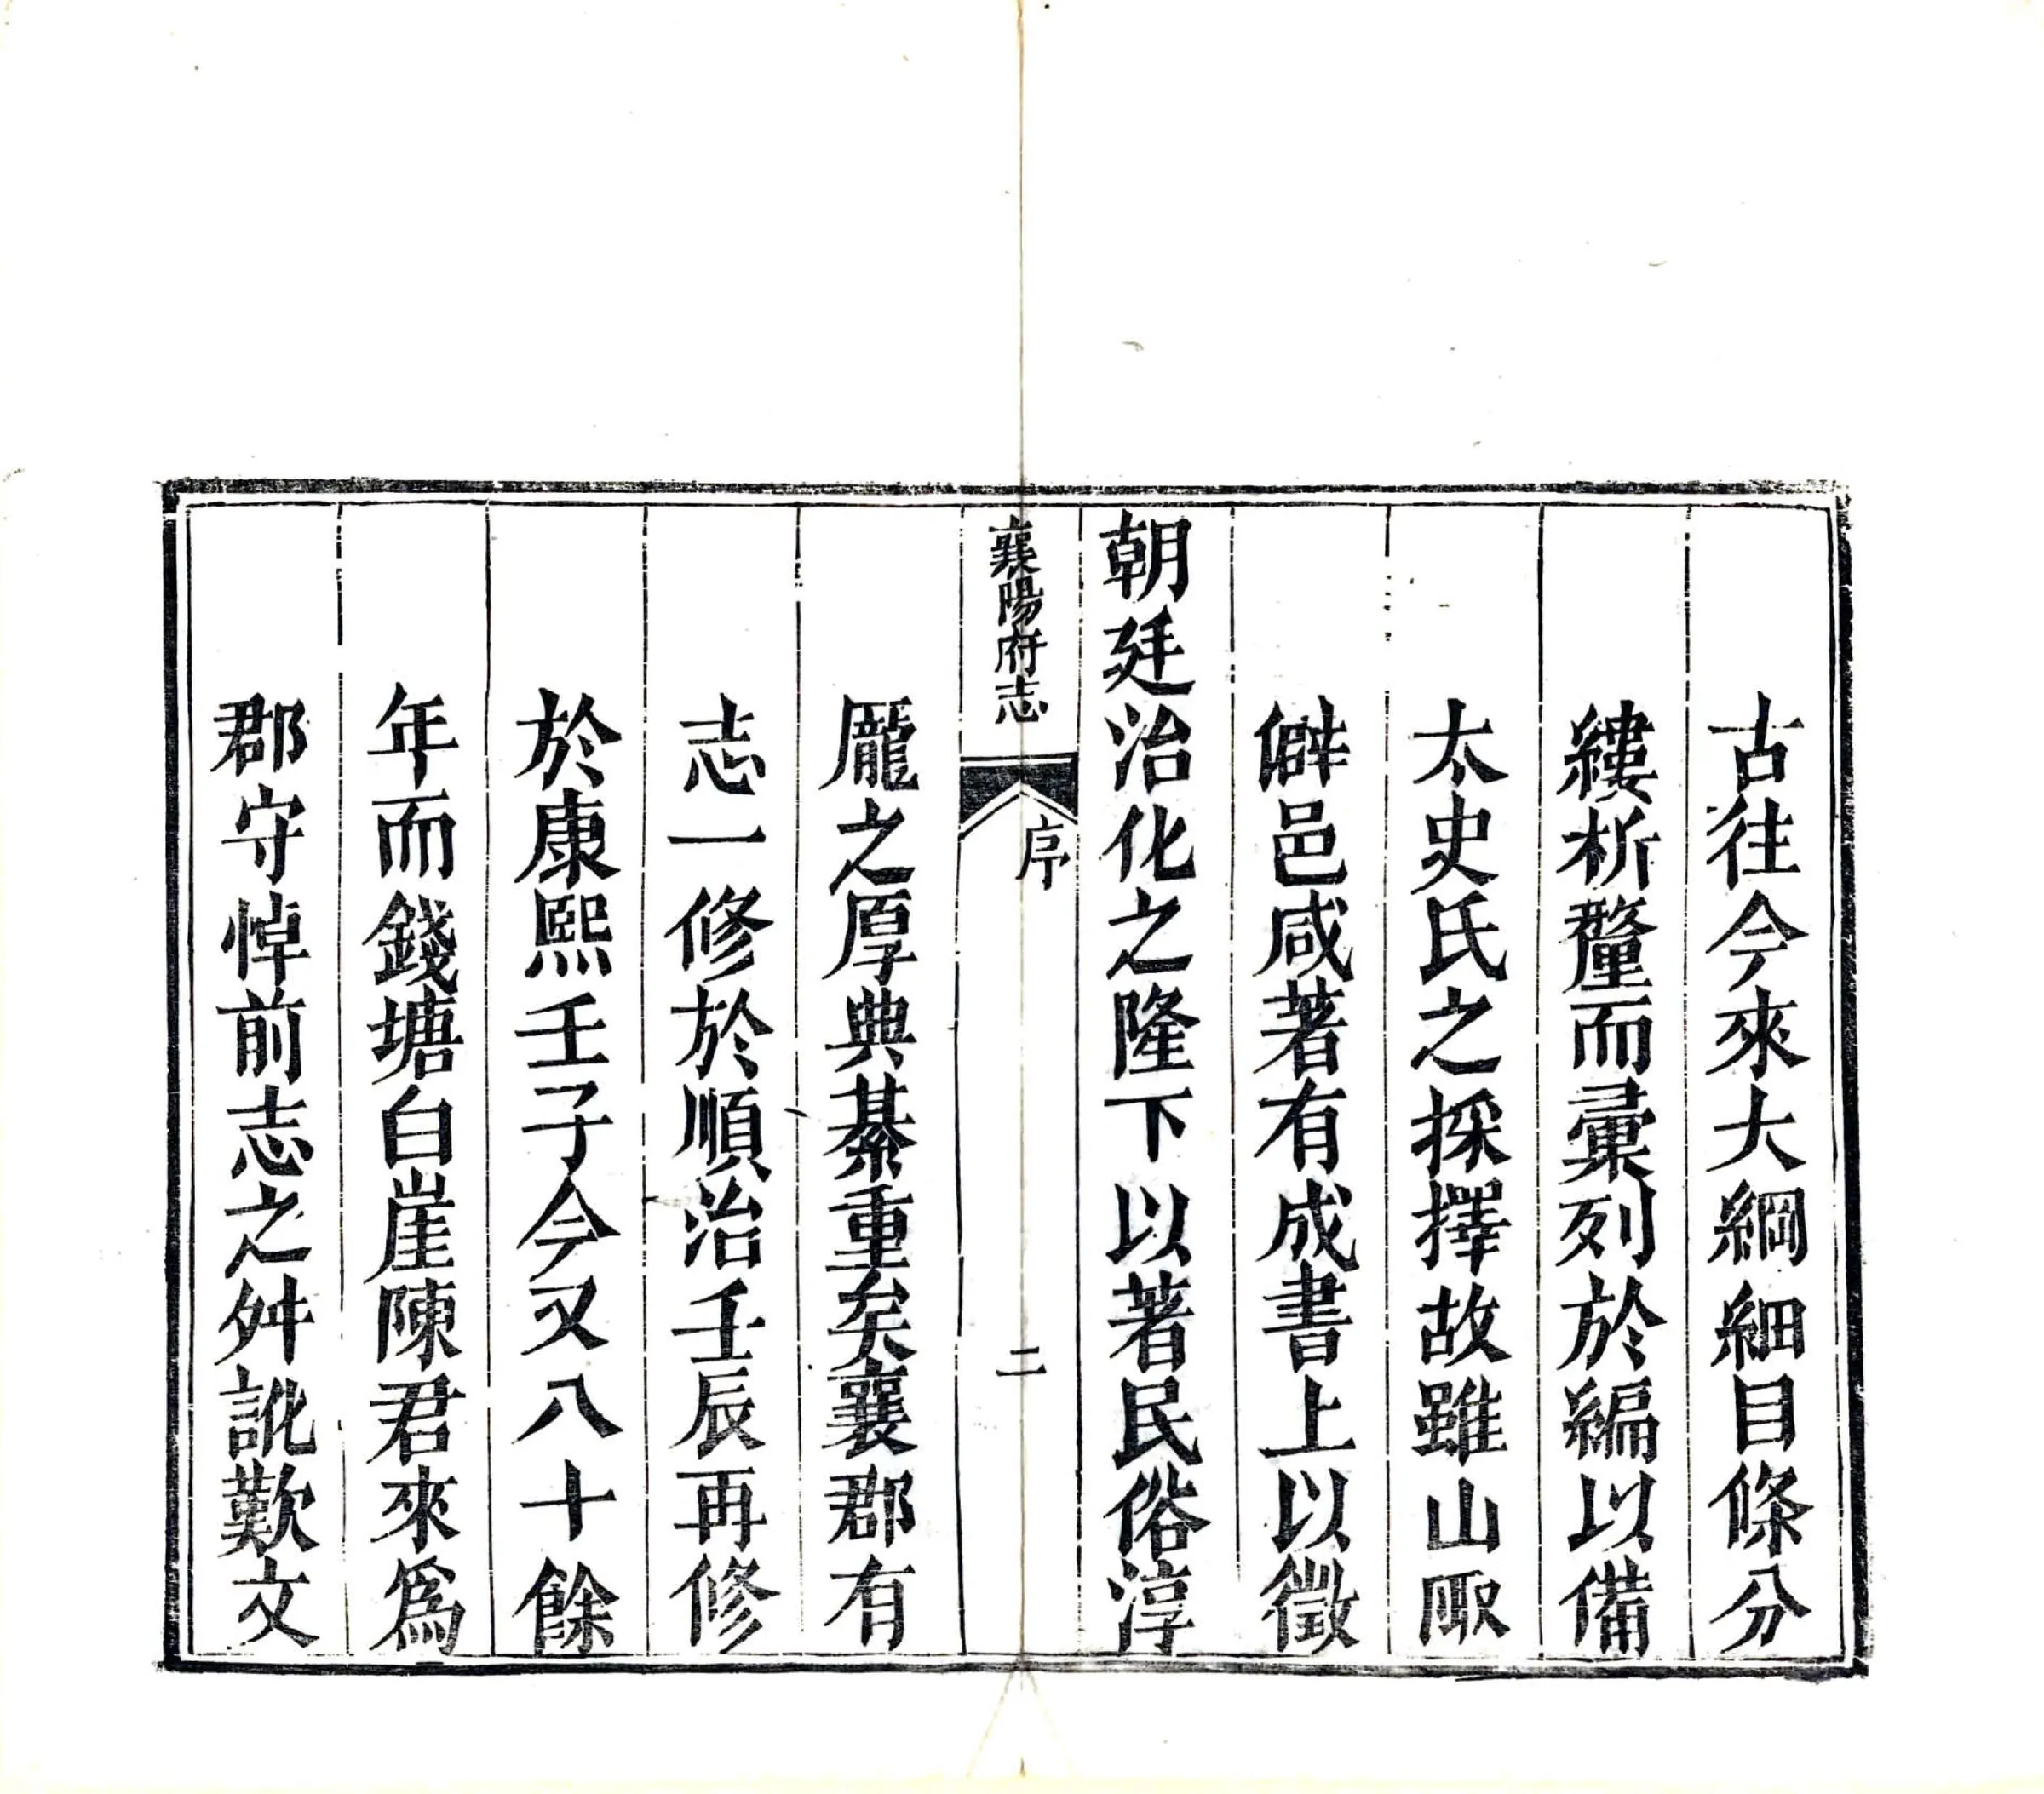 古往今來大綱細目條分
縷析釐而彙列於編以備
太史氏之採擇故雖山陬
僻邑咸著有成書上以徵
朝廷治化之隆下以著民俗淳
襄陽府志
序
二
龎之厚典綦重矣襄郡有
志一修於順治壬辰再修
於康熙壬子今又八十餘
年而錢塘白崖陳君來爲
郡守悼前志之舛訛歎文